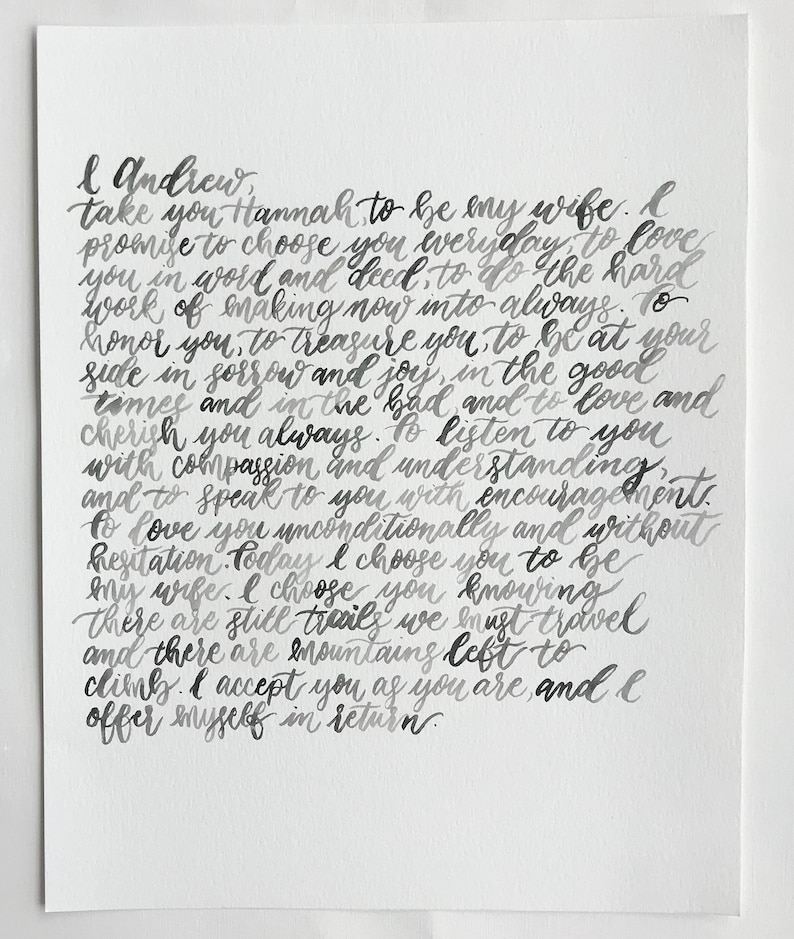 I Andrew,
take you Hannah, to be my wife. I
promise to choose you everyday, to love
you in word and deed, to do the hard
work of making now into always. To
honor you, to treasure you, to be at your
side in sorrow and joy, in the good
times and in the bad, and to love and
cherish you always. To listen to you
with compassion and understanding,
and to speak to you with encouragement.
To love you unconditionally and without
hesitation. Today I choose you to be
my wife. I choose you knowing
there are still trails we must travel
and there are mountains left to
climb. I accept you as you are, and I
offer myself in return.